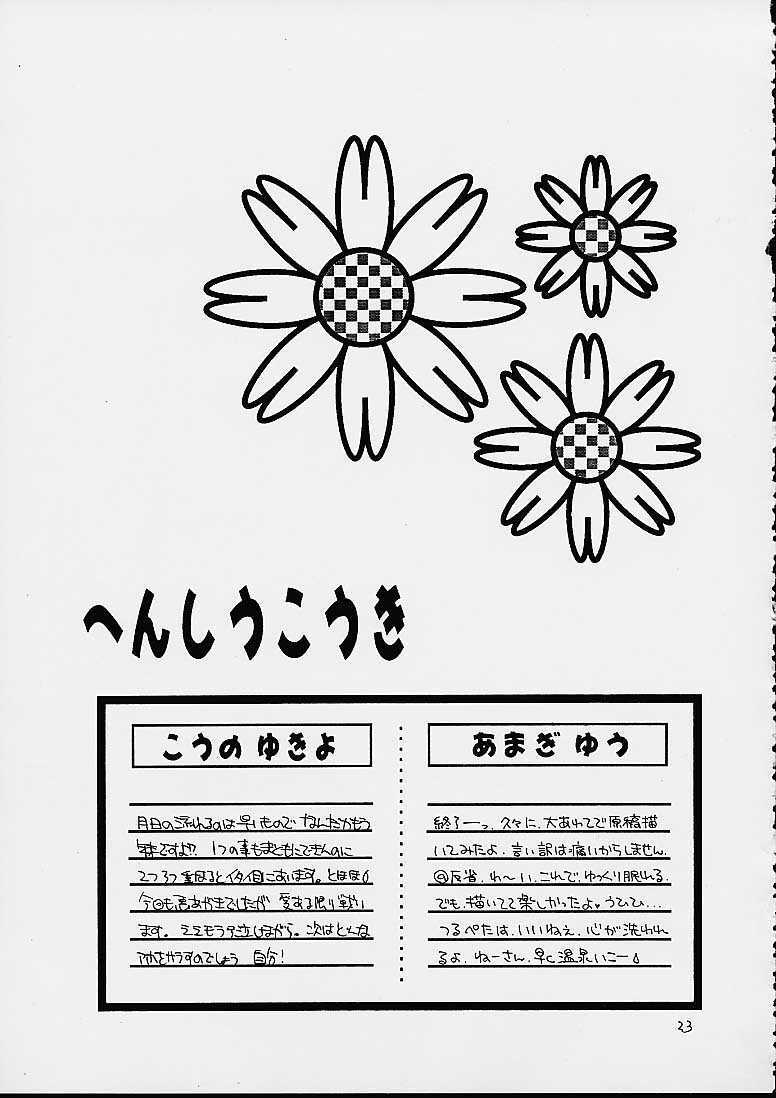 へんしうこうき
こうの ゆきよ
月日の流れるのは早いもので なんだかもう
年末ですよ!? 1つの事もまともにできんのに
2つ3つ重なるとイタイ目にあいます。とほほ
今回も悪あがきでしたが 愛ある限り戦い
ます。ミミモラデ泣しながら。次はどんな
アホをやらかすのでしょう 自分!
あまぎ ゆう
終了ーっ。久々に、大あわてで原稿描
いてみたよ。言い訳は痛いからしません。
反省。わ〜い、これで、ゆっくり眠れる。
でも、描いてて楽しかったよ♥うひひ…
つるぺたは、いいねぇ。心が洗われ
るよ。ねーさん、早く温泉いこー♪
23